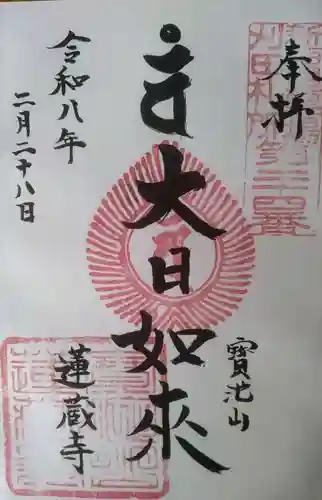 奉拝
大日如来
寶池山
蓮蔵寺
令和八年
二月二十八日